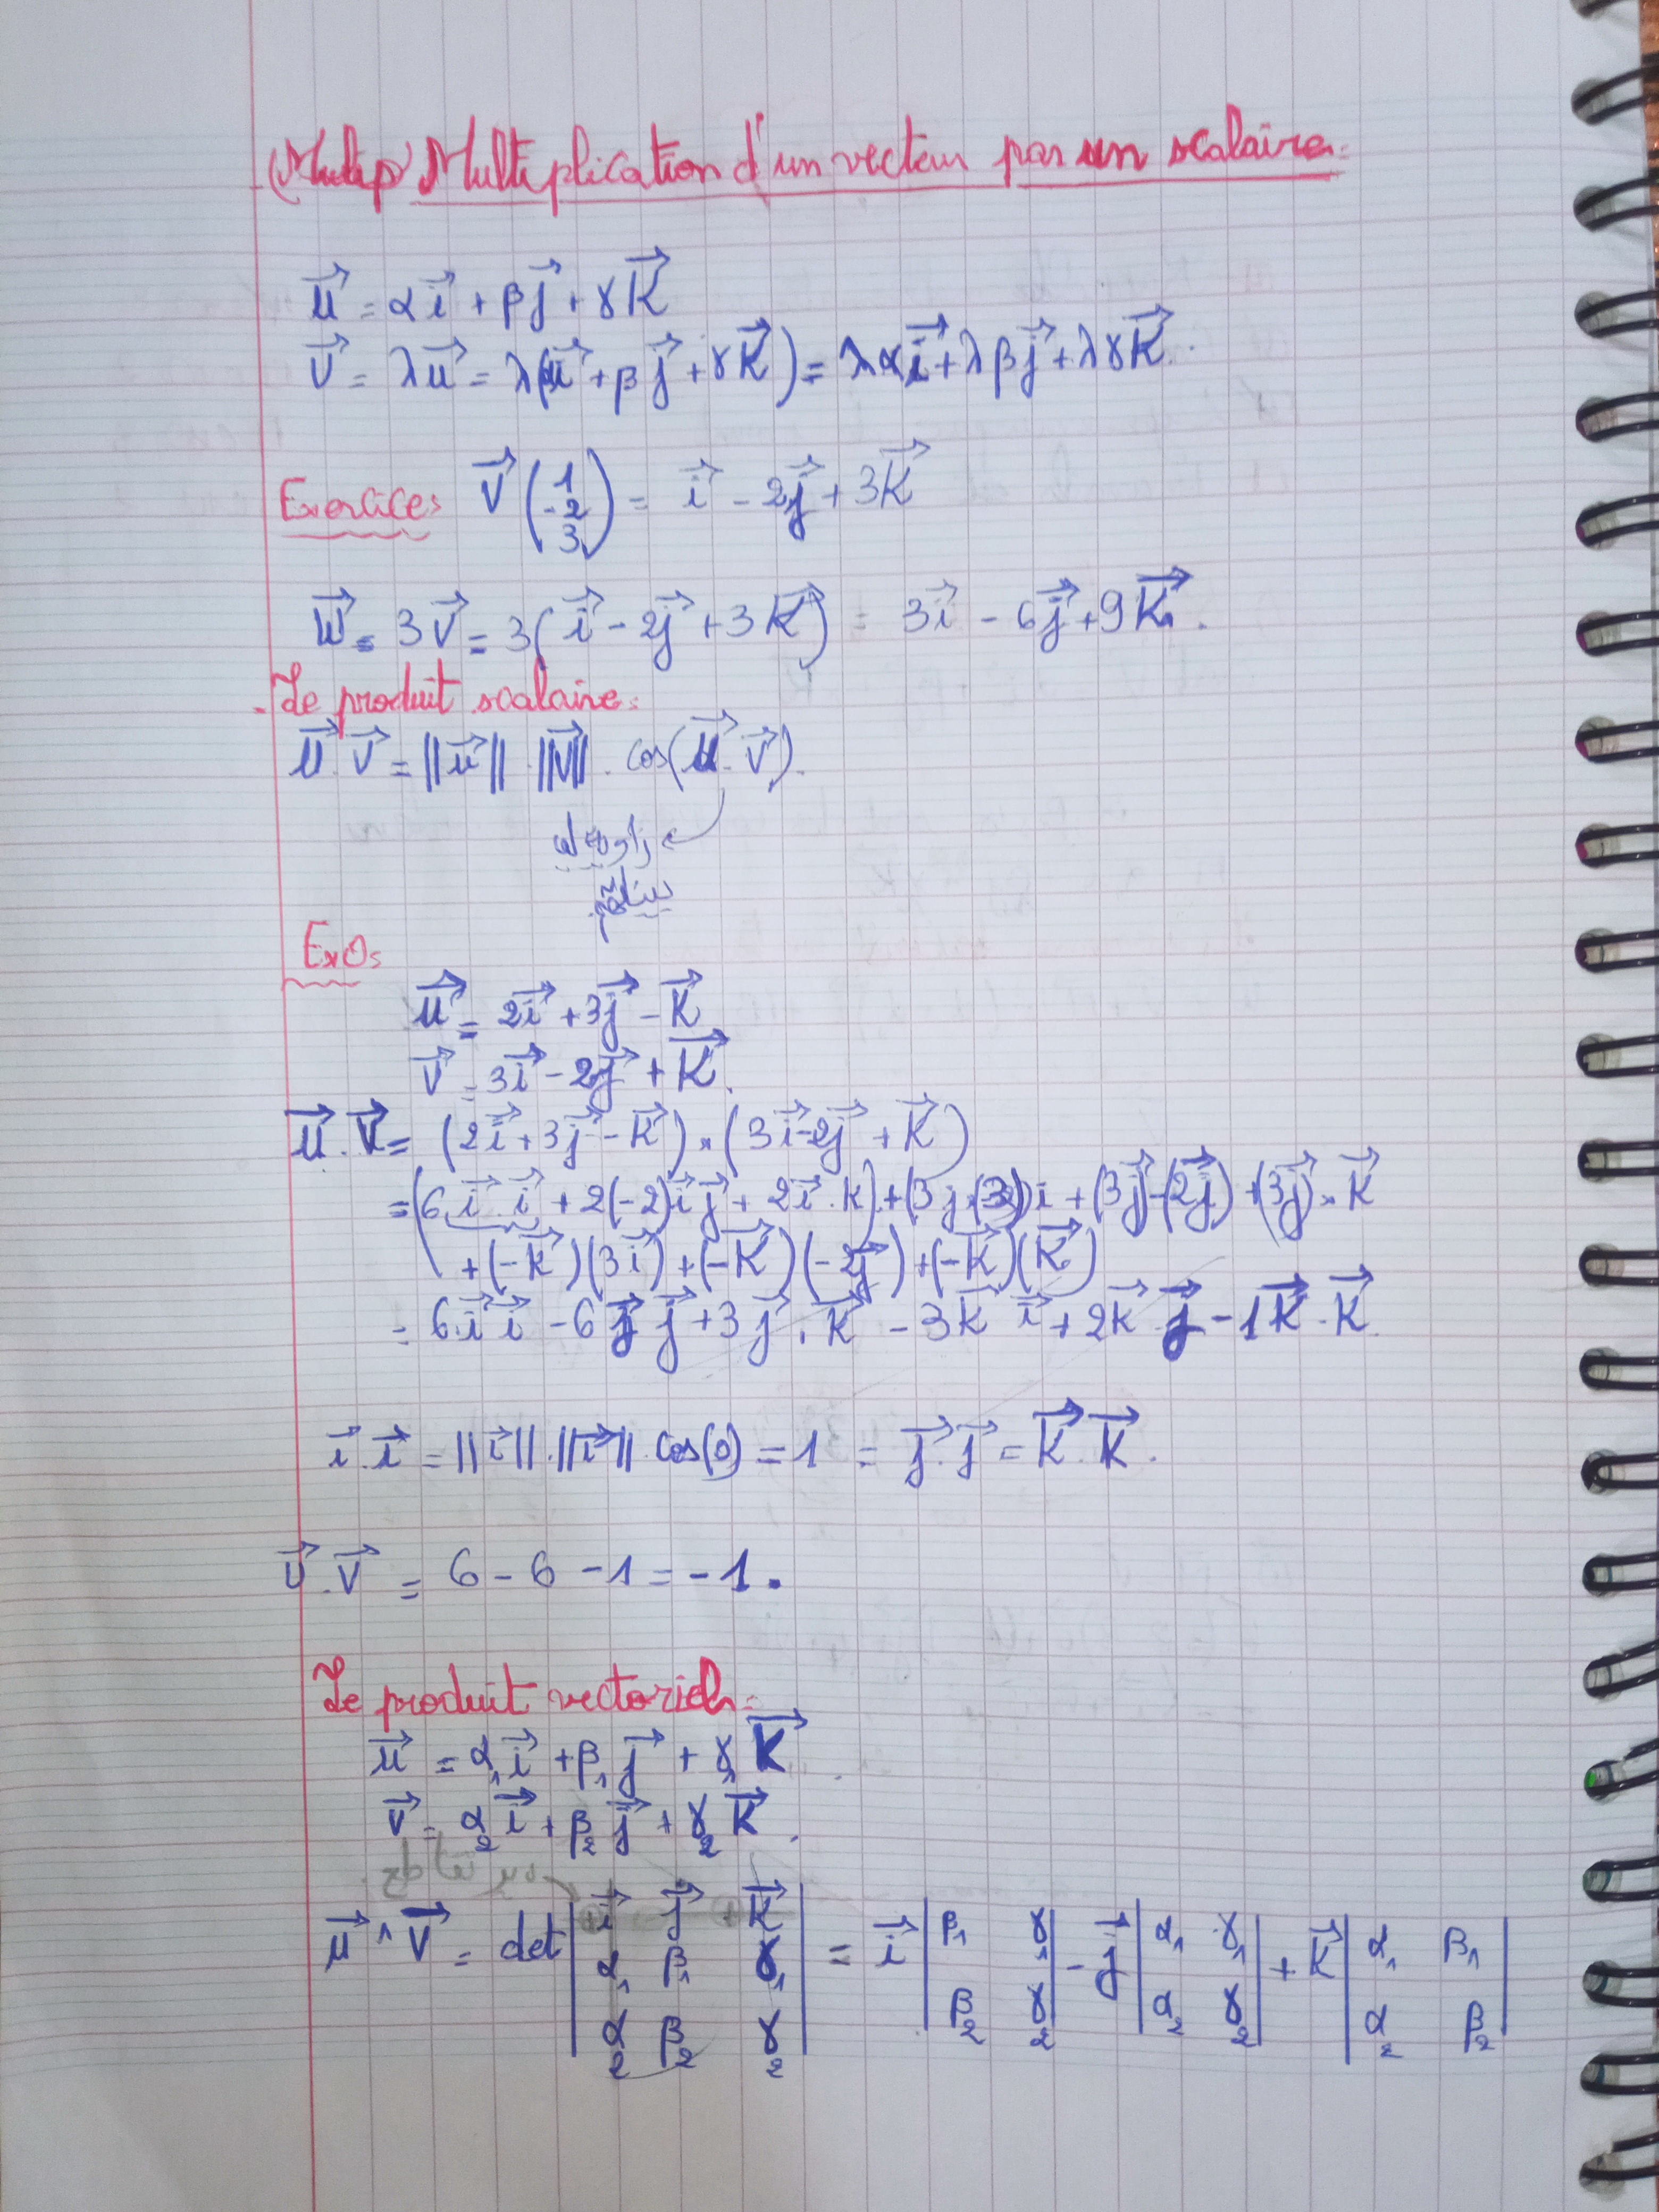 (Multip) Multiplication d'un vecteur par un scalaire:
u⃗ = αi⃗ + βj⃗ + γK⃗
V⃗ = λu⃗ = λ(αi⃗ + βj⃗ + γK⃗) = λαi⃗ + λβj⃗ + λγK⃗.
Exercice: V⃗ (1 -2 3) = i⃗ - 2j⃗ + 3K⃗
W⃗ = 3V⃗ = 3(i⃗ - 2j⃗ + 3K⃗) = 3i⃗ - 6j⃗ + 9K⃗.
- Le produit scalaire:
u⃗.V⃗ = ||u⃗|| . ||V⃗|| . cos(u⃗.V⃗).
بينهم
Exo:
u⃗ = 2i⃗ + 3j⃗ - K⃗
V⃗ = 3i⃗ - 2j⃗ + K⃗.
u⃗.V⃗ = (2i⃗ + 3j⃗ - K⃗) . (3i⃗ - 2j⃗ + K⃗)
= (6i⃗.i⃗ + 2(-2)i⃗j⃗ + 2i⃗.K) + (3j.(3)i + (3j⃗-(2j⃗) + (3j⃗).K⃗
+ (-K⃗)(3i⃗) + (-K⃗)(-2j⃗) + (-K⃗)(K⃗)
= 6i⃗i⃗ - 6j⃗j⃗ + 3j⃗.K⃗ - 3K⃗i⃗ + 2K⃗j⃗ - 1K⃗.K⃗.
i⃗.i⃗ = ||i⃗|| . ||i⃗|| . cos(0) = 1 = j⃗.j⃗ = K⃗.K⃗.
U⃗.V⃗ = 6 - 6 - 1 = -1.
Le produit vectoriel:
u⃗ = α₁i⃗ + β₁j⃗ + γ₁K⃗
V⃗ = α₂i⃗ + β₂j⃗ + γ₂K⃗.
u⃗ ∧ V⃗ = det |i⃗ j⃗ K⃗| = i⃗ |β₁ γ₁| - j⃗ |α₁ γ₁| + K⃗ |α₁ β₁|
α₁ β₁ γ₁
α₂ β₂ γ₂ β₂ γ₂ α₂ γ₂ α₂ β₂